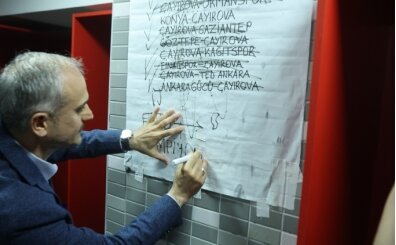 ÇAYIROVA-ORMANSPOR
KONYA-ÇAYIROVA
ÇAYIROVA-GAZİANTEP
GÖZTEPE-ÇAYIROVA
ÇAYIROVA-KAĞITSPOR
ÇAYIROVA
ÇAYIROVA-TED ANKARA
ANKARAGÜCÜ-ÇAYIROVA